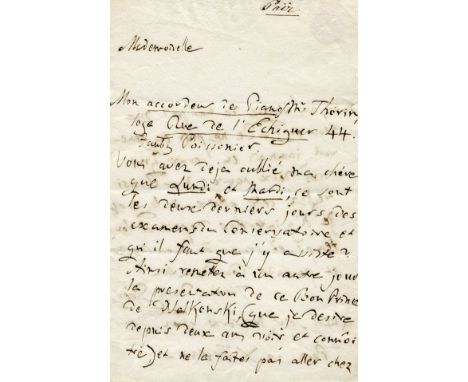 Mademoiselle
Mon accordeur de Pianos Mr Thorin
loge Rue de l'Echiquer 44.
Faubg Poissonier
Vous avez deja oublié, ma chère
que Lundi et Mardi, ce sont
les deux derniers jours des
examens du Conservatoire et
qu'il faut que j'y assiste?
Ainsi remetez à un autre jour
la presentation de ce Bon Prince
de Walkonski (que je desire
depuis deux ans voir et connoi
tre) et ne le faites pas aller chez